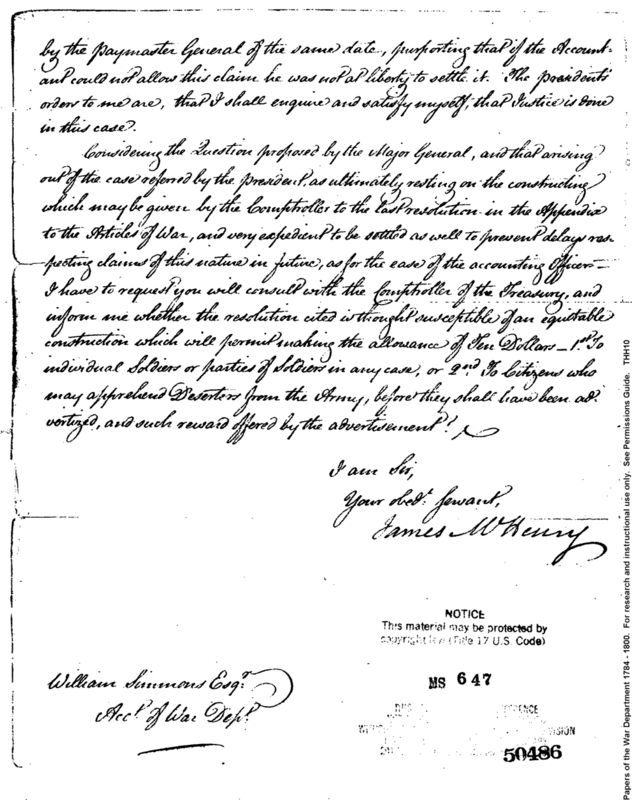 by the Paymaster General of the same date, purporting that if the Account-
ant could not allow this claim he was not at liberty to settle it. The presidents
orders to me are, that I shall enquire and satisfy myself, that Justice is done
in this case.
Considering the Question proposed by the Major General, and that arising
out of the case referred by the president, as ultimately resting on the constructing
which may be given by the Comptroller to the last resolution in the Appendix
to the Articles of War, and very expedient to be settled as well to prevent delays res-
pecting claims of this nature in future, as for the ease of the accounting Officer—
I have to request you will consult with the Comptroller of the Treasury, and
inform me whether the resolution cited is thought susceptible of an equitable
construction which will permit making the allowance of Ten Dollars— 1st To
individual Soldiers or parties of Soldiers in any case, or 2nd To Citizens who
may apprehend Deserters from the Army, before they shall have been ad-
vertized, and such reward offered by the advertisement?
I am Sir,
Your obedt. Servant,
James McHenry
NOTICE
This material may be protected by
copyright law (Title 17 U.S. Code)
MS 647
50486
William Simmons Esqr.
Acct. of War Dept.
Papers of the War Department 1784 - 1800. For research and instructional use only. See Permissions Guide. THH10